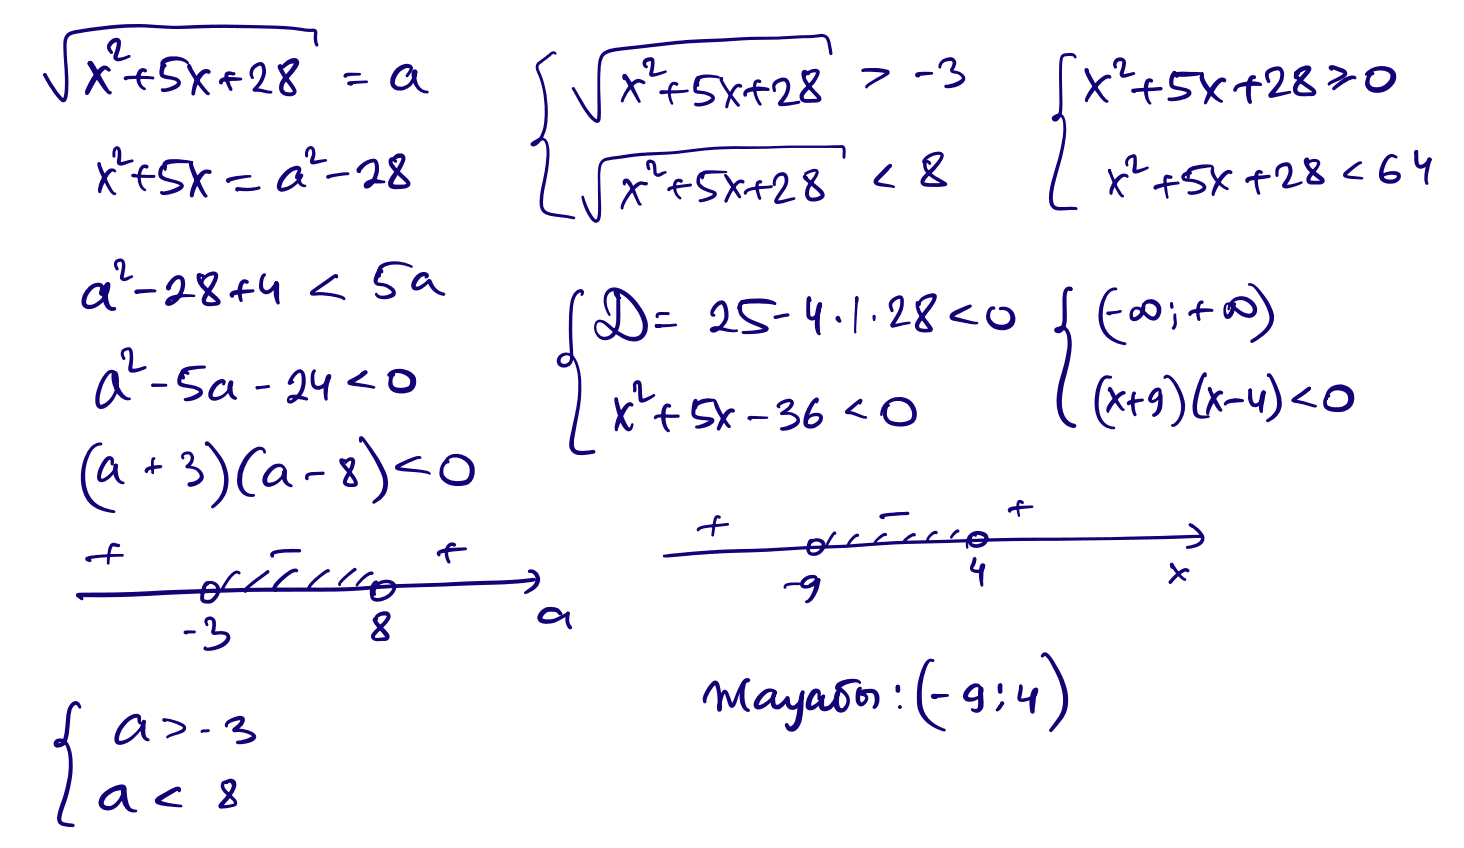 √(x²+5x+28) = a
x²+5x = a²-28
a²-28+4 < 5a
a²-5a-24<0
(a+3)(a-8)<0
+ - +
-3 8 a
{ a>-3
a < 8
{ √(x²+5x+28) > -3
√(x²+5x+28) < 8
{ x²+5x+28⩾0
x²+5x+28<64
{ D= 25-4·1·28<0
x²+5x-36<0
{ (-∞;+∞)
(x+9)(x-4)<0
+ - +
-9 4 x
:(-9;4)